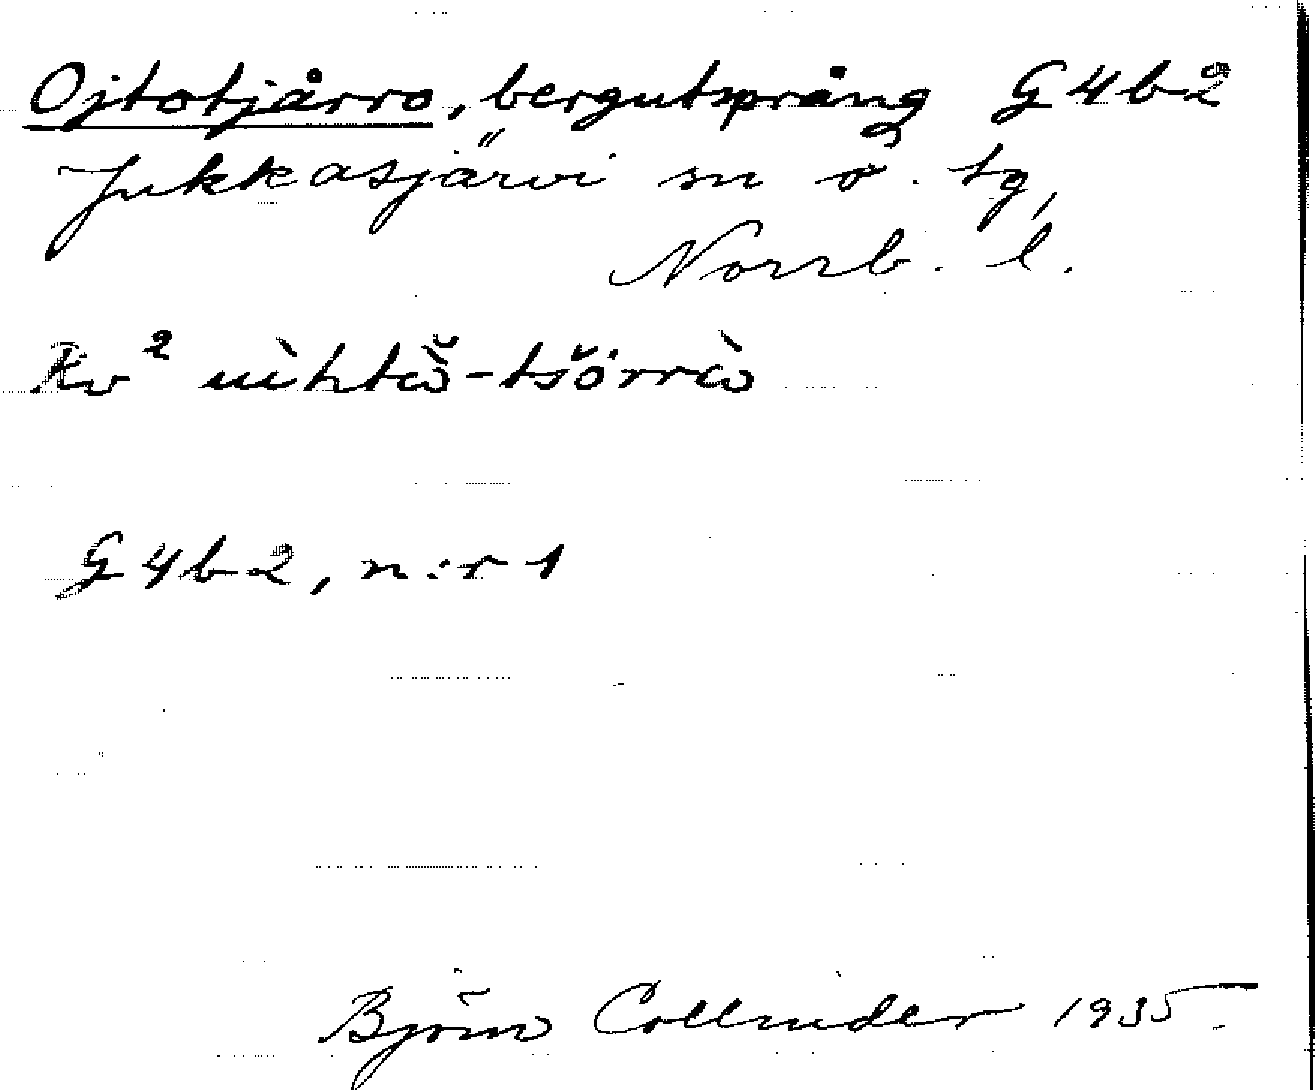 Ojtotjårro, bergutsprång G4b2
Jukkasjärvi sn o. tg,
Norrb. l.
Kv²
G4b2, n:r 1
Björn Collinder 1935